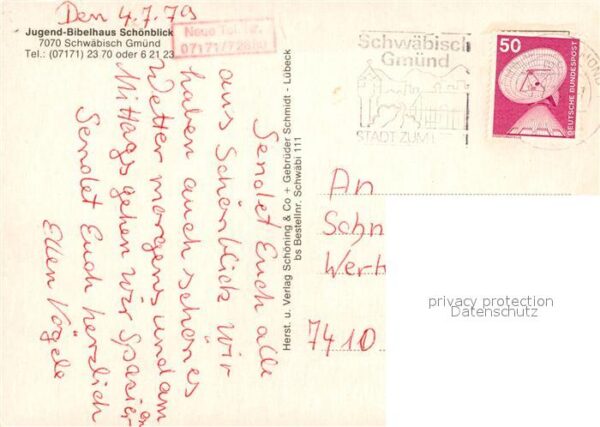 Den 4.7.79
Jugend-Bibelhaus Schönblick
7070 Schwäbisch Gmünd
Tel.: (07171) 23 70 oder 6 21 23
Neue Tel. Nr.
07171/72880
Sendet Euch alle
aus Schönblick wir
haben auch schönes
Wetter morgens und am
Mittags gehen wir Spasier
en
Sendet Euch herzlich
Ellen Vögele
Herst. u. Verlag Schöning & Co + Gebrüder Schmidt - Lübeck
bs Bestellnr. Schwäbi 111
Schwäbisch
Gmünd
STADT ZUM
50
DEUTSCHE BUNDESPOST
An
Schn
Werk
7410
privacy protection
Datenschutz